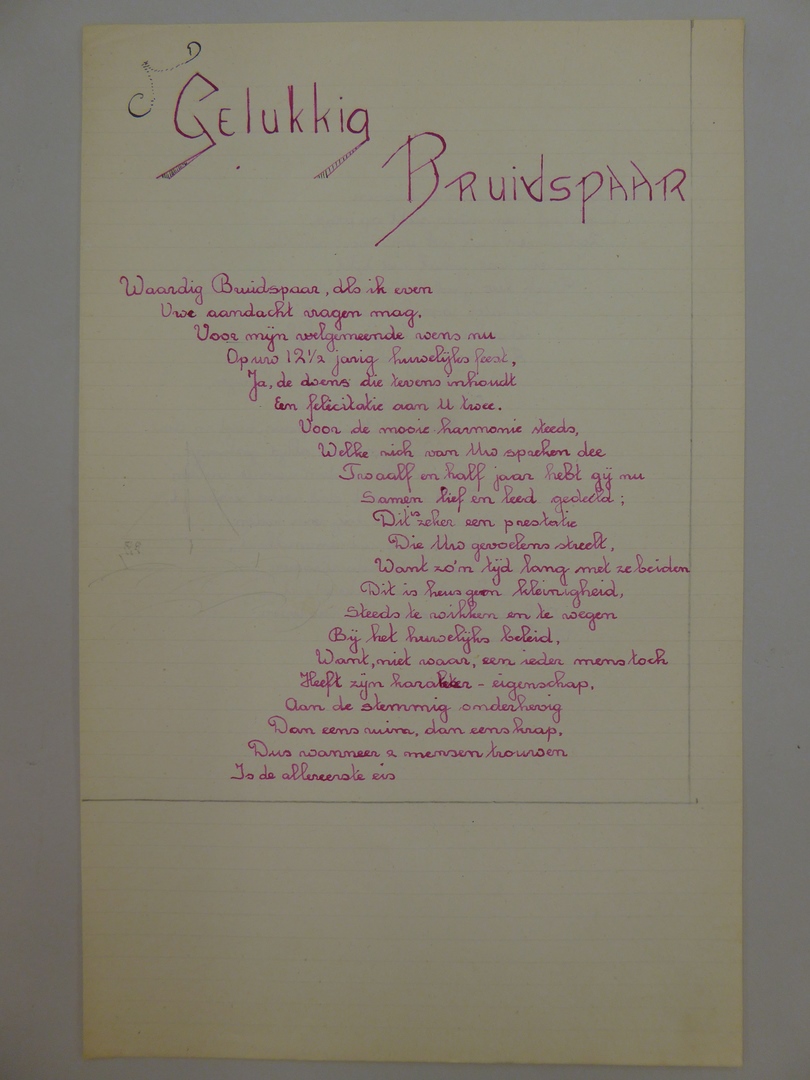 Gelukkig
Bruidspaar
Waardig Bruidspaar, als ik even
Uwe aandacht vragen mag.
Voor mijn welgemeende wens nu
Op uw 12½ jarig huwelijks feest,
Ja, de wens die tevens inhoudt
Een felicitatie aan U twee.
Voor de mooie harmonie steeds,
Welke zich van Uw spreken dee
Twaalf en half jaar hebt gij nu
Samen lief en leed gedeeld;
Dit is zeker een prestatie
Die Uw gevoelens streelt,
Want zo'n tijd lang met ze beiden
Dit is heus geen kleinigheid,
Steeds te wikken en te wegen
Bij het huwelijks beleid,
Want, niet waar, een ieder mens toch
Heeft zijn karakter - eigenschap,
Aan de stemmig onderhevig
Dan eens ruim, dan eens krap,
Dus wanneer 2 mensen trouwen
Is de allereerste eis